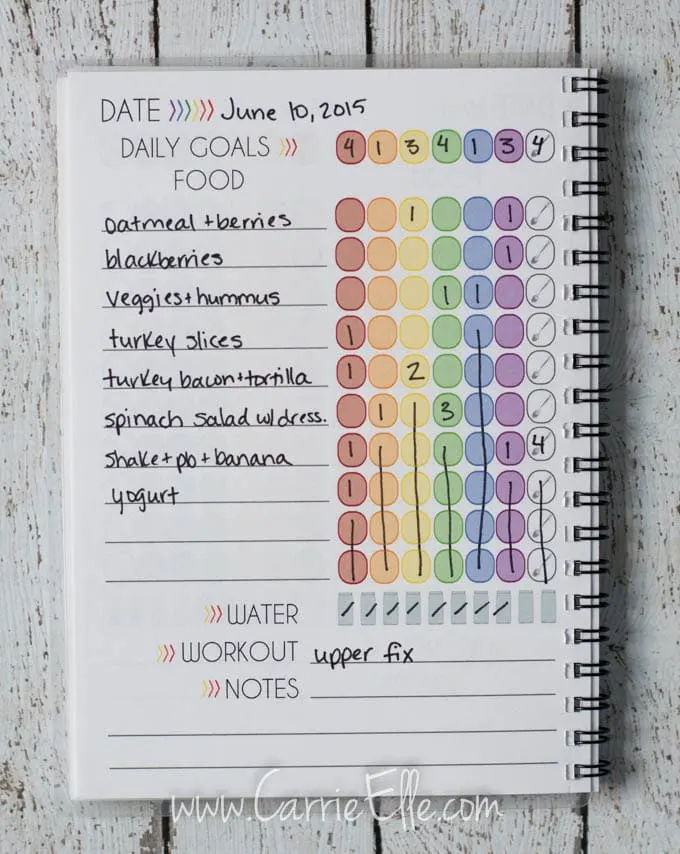 DATE >>>>>> June 10, 2015
DAILY GOALS >>> 4 1 3 4 1 3 4
FOOD
oatmeal + berries 1 1
blackberries 1
veggies + hummus 1 1
turkey slices 1
turkey bacon + tortilla 1 2
spinach salad w/ dress. 1 3
shake + pb + banana 1 1 4
yogurt 1
>>> WATER
>>> WORKOUT upper fix
>>> NOTES
www.CarrieElle.com